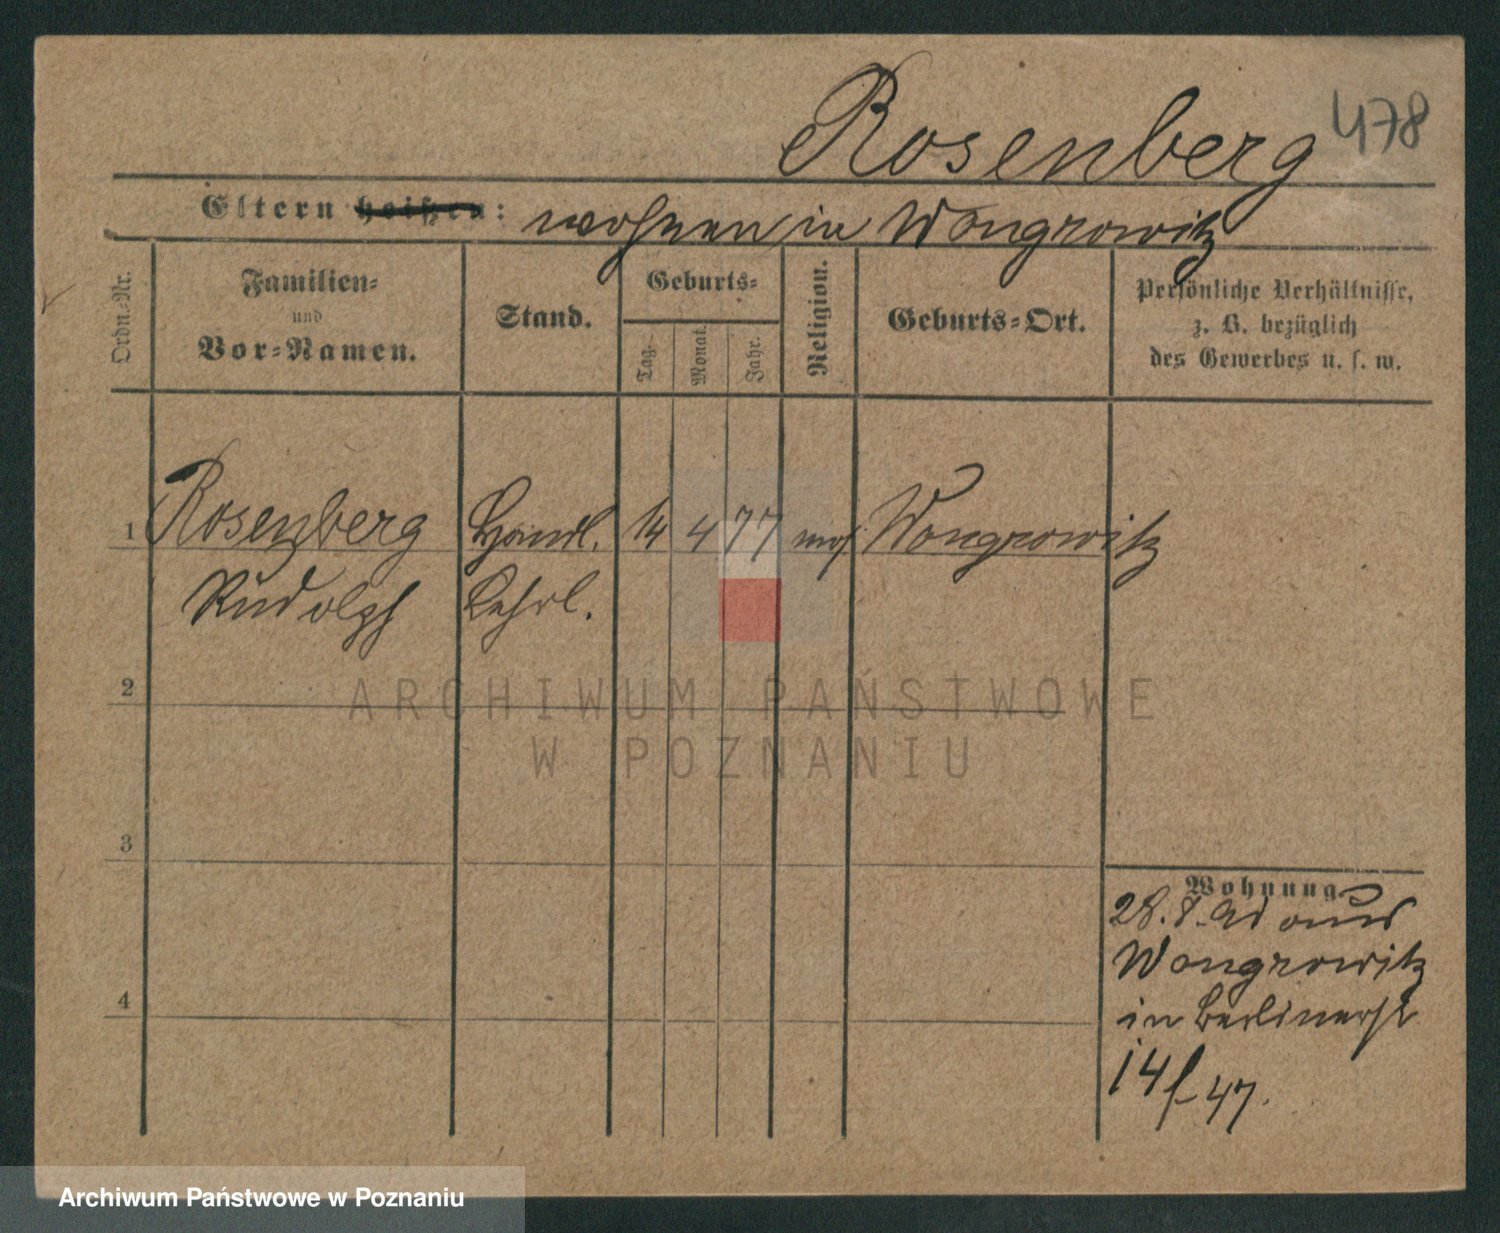 Rosenberg 478
Eltern heißen: wohnen in Wongrowitz
Ordn.-Nr.
Familien-
und
Vor-Namen.
Stand.
Geburts-
Tag.
Monat.
Jahr.
Religion.
Geburts-Ort.
Persönliche Verhältnisse,
z. B. bezüglich
des Gewerbes u. s. w.
1 Rosenberg Handl. 14 4 77 mos Wongrowitz
Rudolph Lehrl.
2
3
4
Wohnung
28. 8. aus
Wongrowitz
in Berlinerst
14 47.
ARCHIWUM PAŃSTWOWE
W POZNANIU
Archiwum Państwowe w Poznaniu